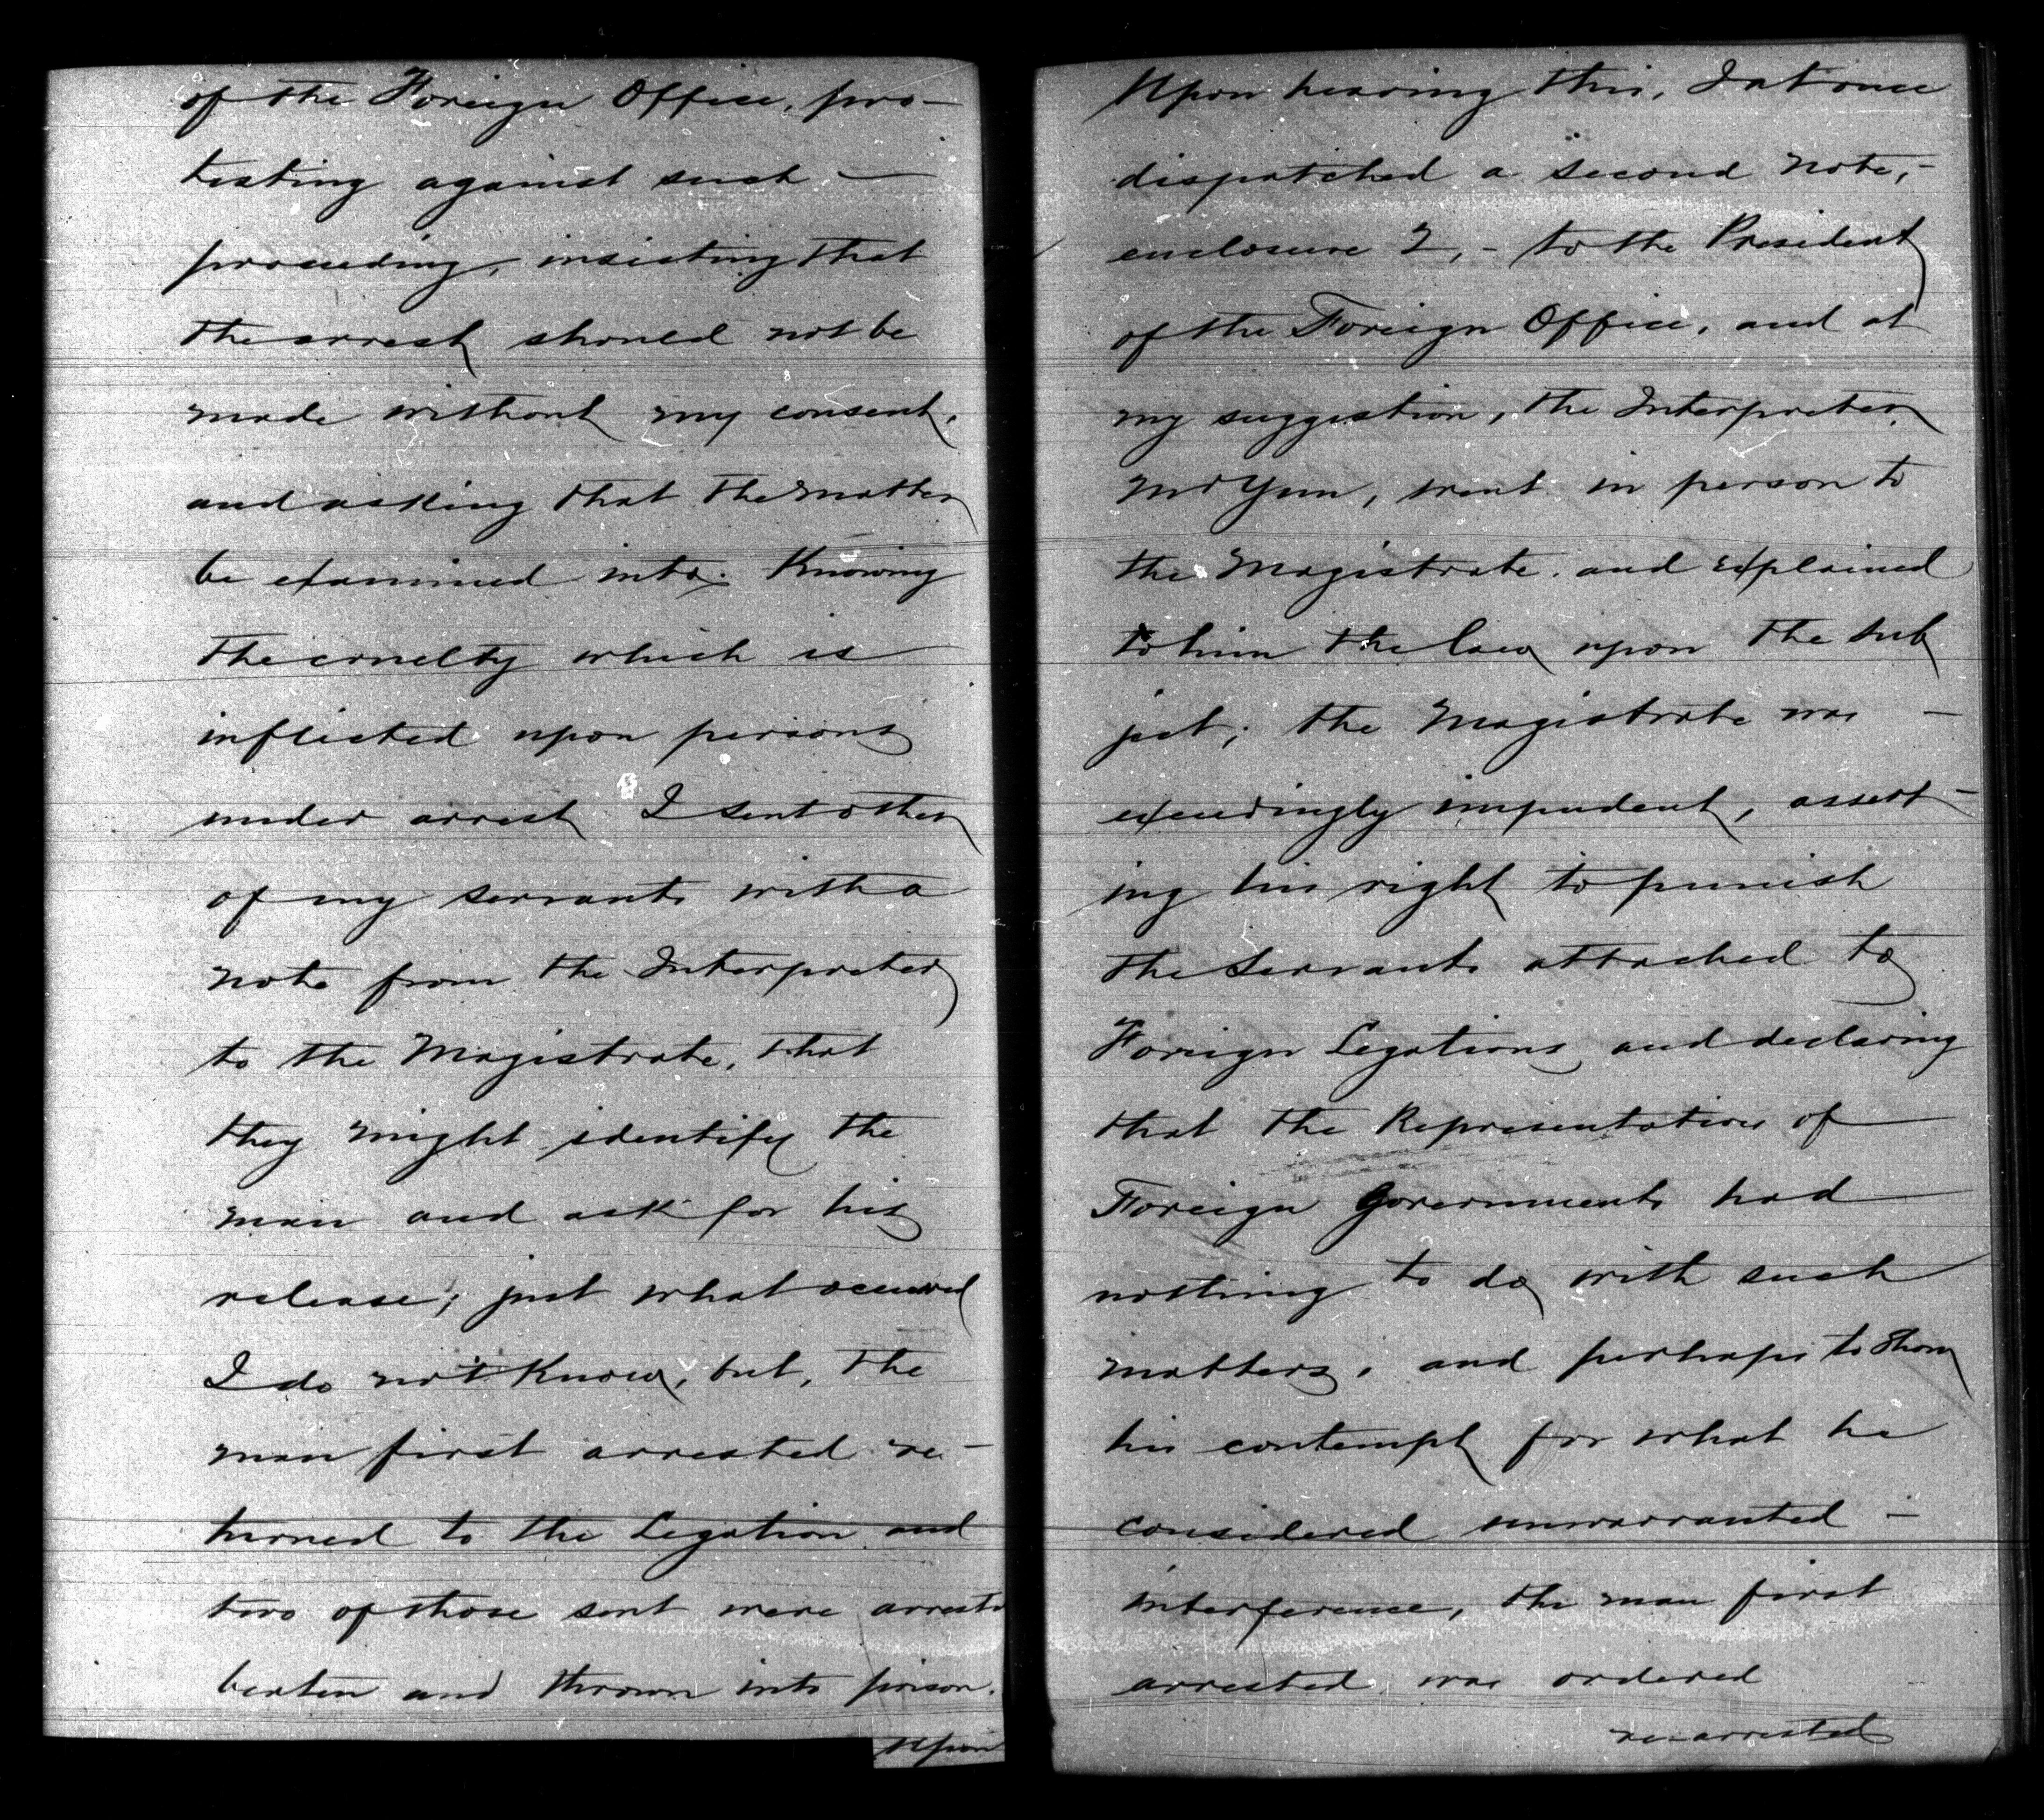 of the Foreign Office, pro-
testing against such —
proceeding, insisting that
the arrest should not be
made without my consent,
and asking that the matter
be examined into. Knowing
the cruelty which is
inflicted upon persons
under arrest I sent other
of my servants with a
note from the Interpreter
to the Magistrate, that
they might identify the
man and ask for his
release; just what occurred
I do not know, but, the
man first arrested re-
turned to the Legation and
two of those sent were arrested
beaten and thrown into prison.
Upon
Upon hearing this, I at once
dispatched a second note, -
enclosure 2, - to the President
of the Foreign Office, and at
my suggestion, the Interpreter,
Mr Yun, went in person to
the Magistrate and explained
to him the law upon the sub
ject; the Magistrate was —
exceedingly impudent, assert-
ing his right to punish
the servants attached to
Foreign Legations and declaring
that the Representatives of
Foreign Governments had
nothing to do with such
matters, and perhaps to show
his contempt for what he
considered unwarranted -
interference, the man first
arrested was ordered
re-arrested